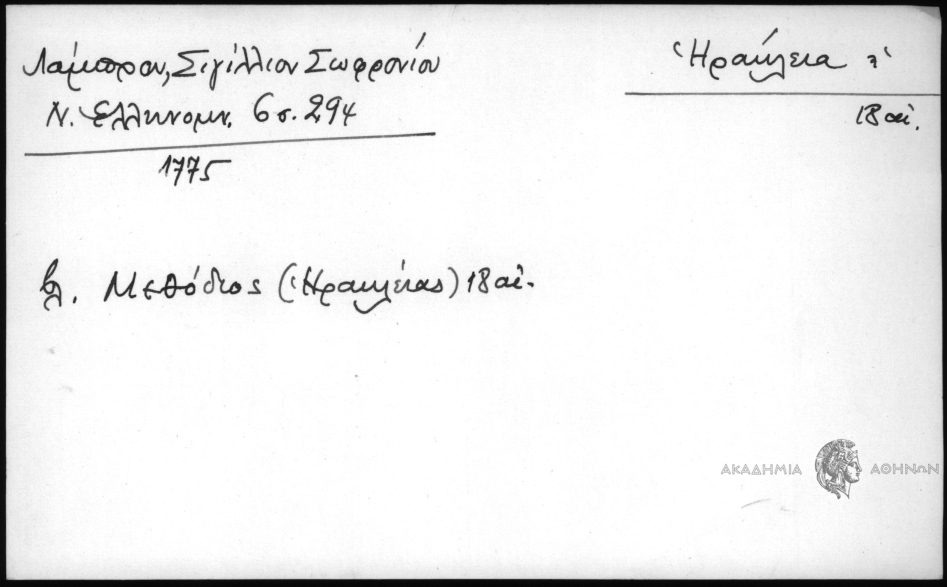 Λάμπρου, Σιγίλλιον Σωφρονίου
Ν. Ελληνομν. 6 σ. 294
1775
Ἡράκλεια
18 αἰ.
βλ. Μεθόδιος (Ἡρακλείας) 18 αἰ.
ΑΚΑΔΗΜΙΑ ΑΘΗΝΩΝ